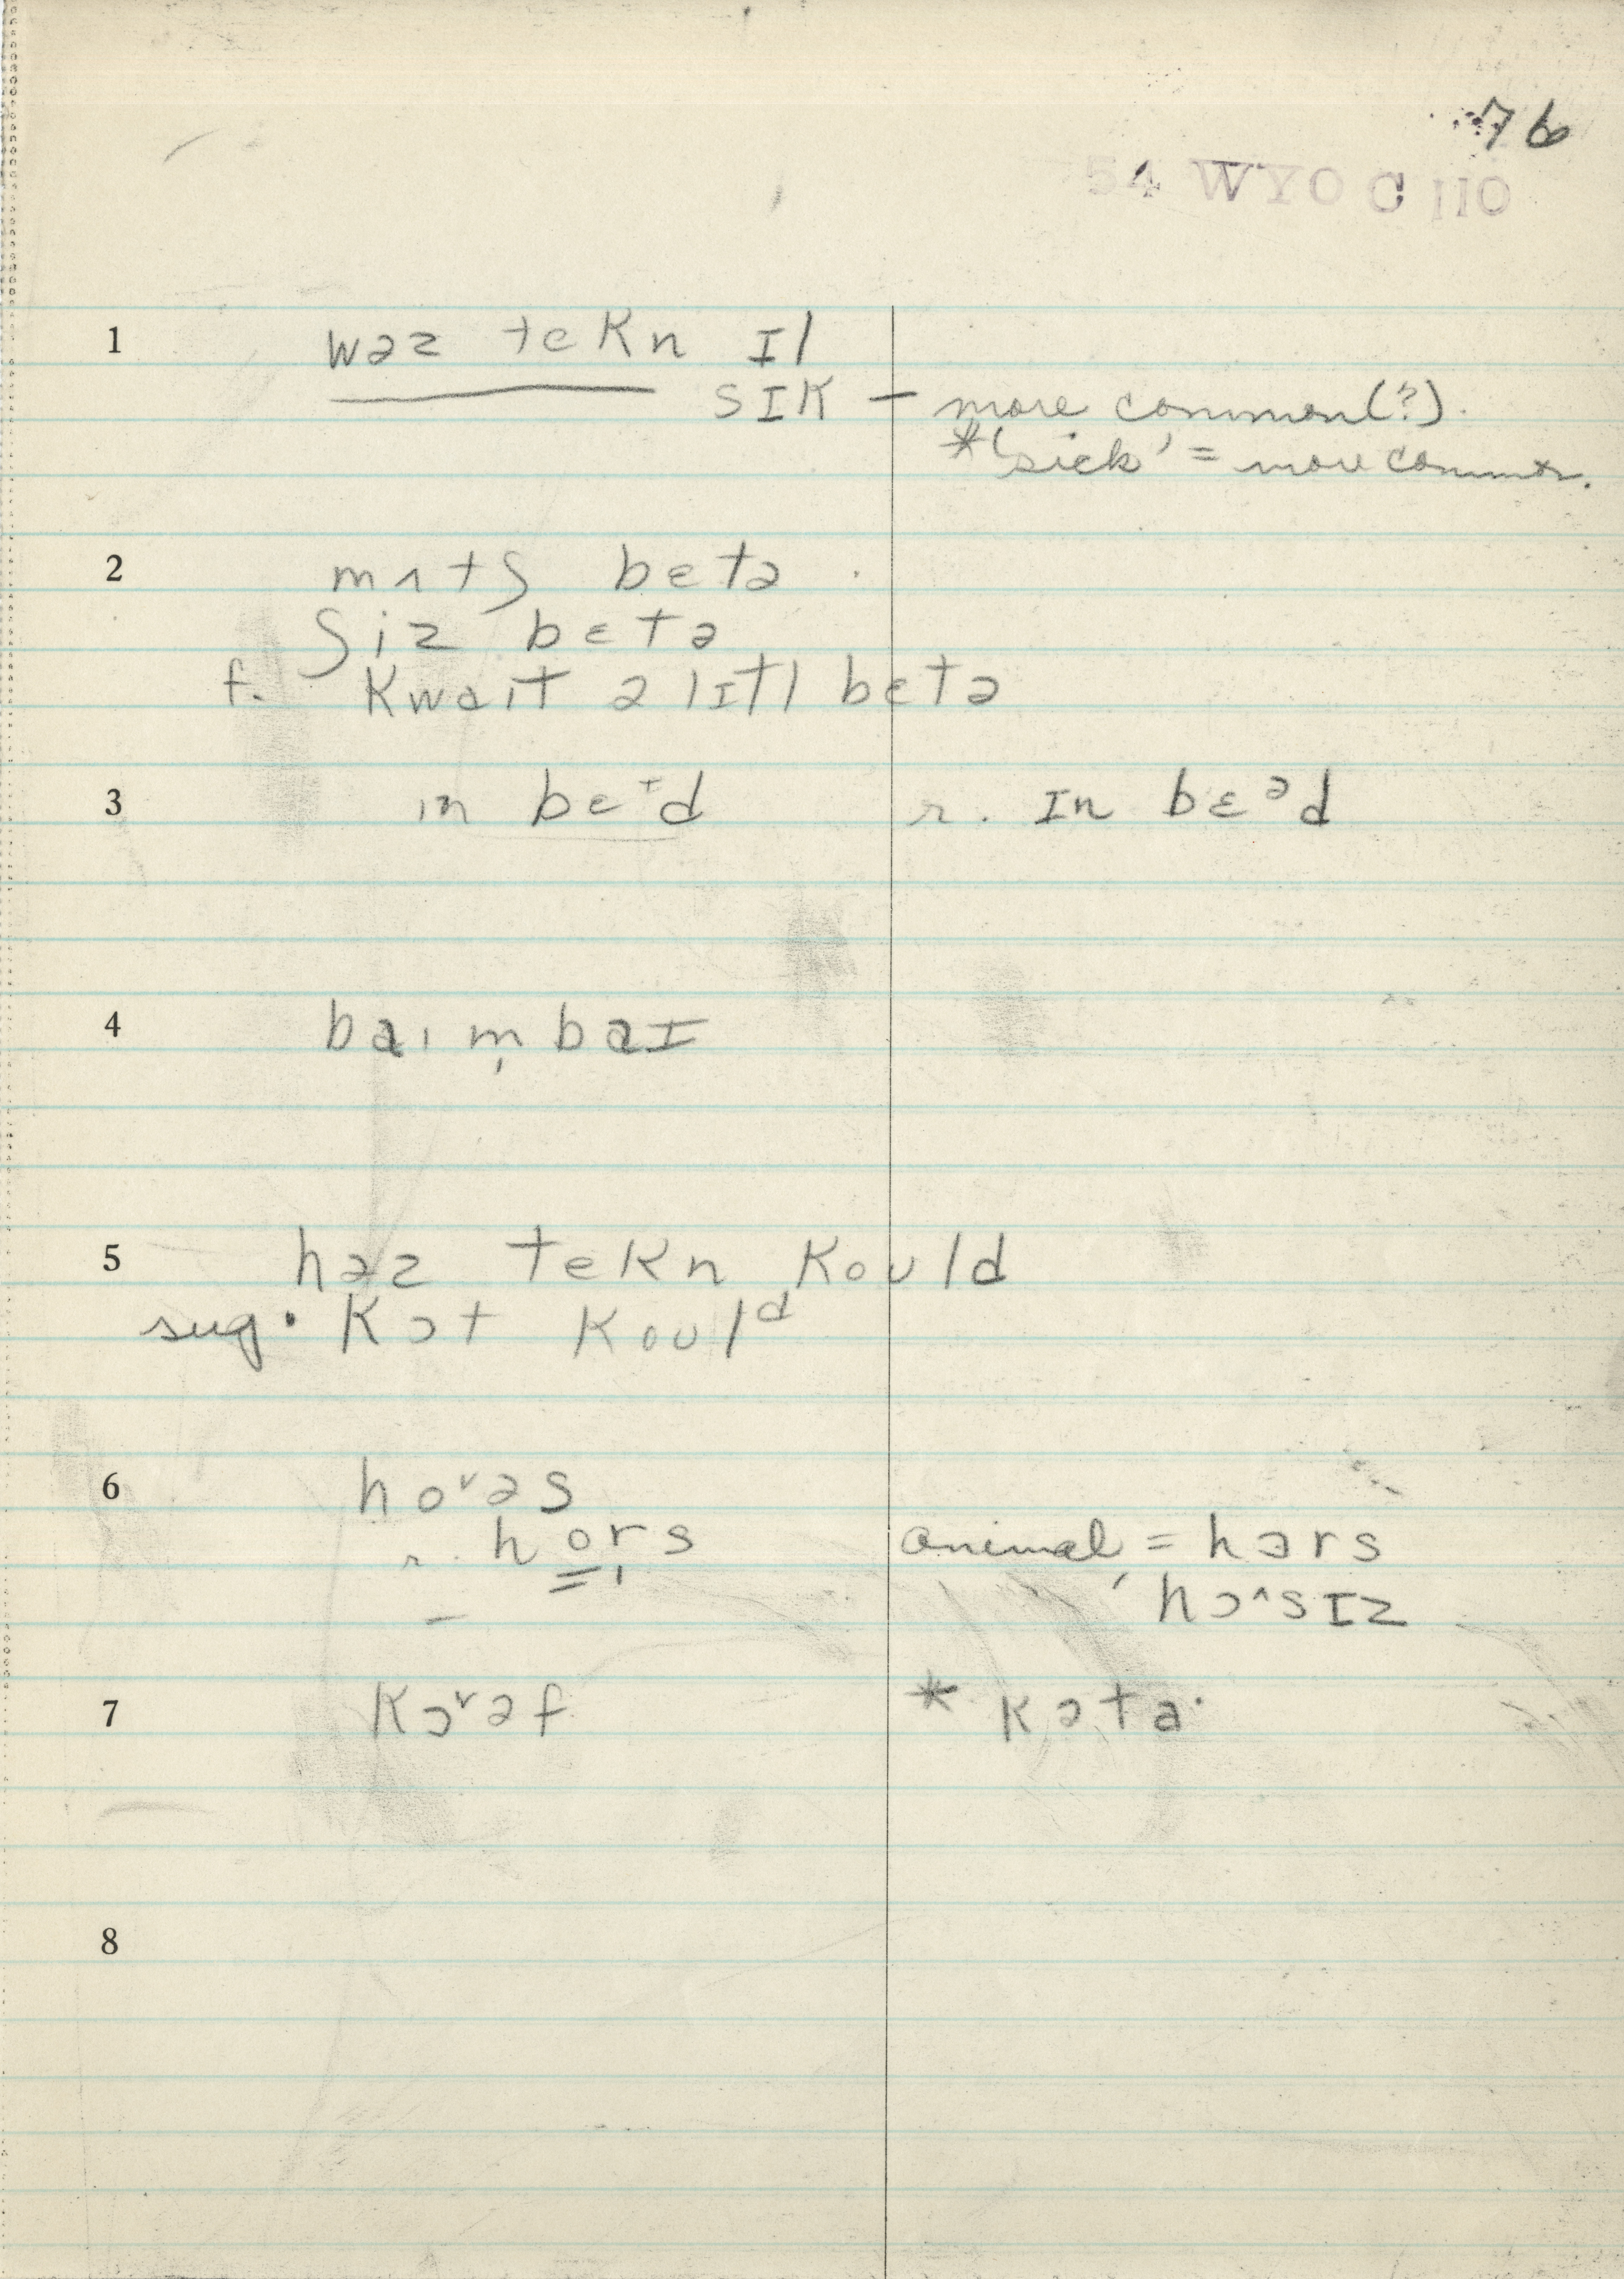 76
54 WYO C 110
1 wəz tekn ɪl
sɪk — more common(?).
*'sick' = more common.
2 mʌtʃ bɛtə
ʃiz bɛtə
f. kwaɪt ə lɪtl bɛtə
3 ɪn bɛᶧd r. ɪn bɛᵊd
4 baɪ m̩ baɪ
5 həz tekn kould
sug. kɔt koulᵈ
6 ho˅əs
r. hors animal = hɔrs
hɔ^sɪz
7 kɔ˅əf * kətaˑ
8